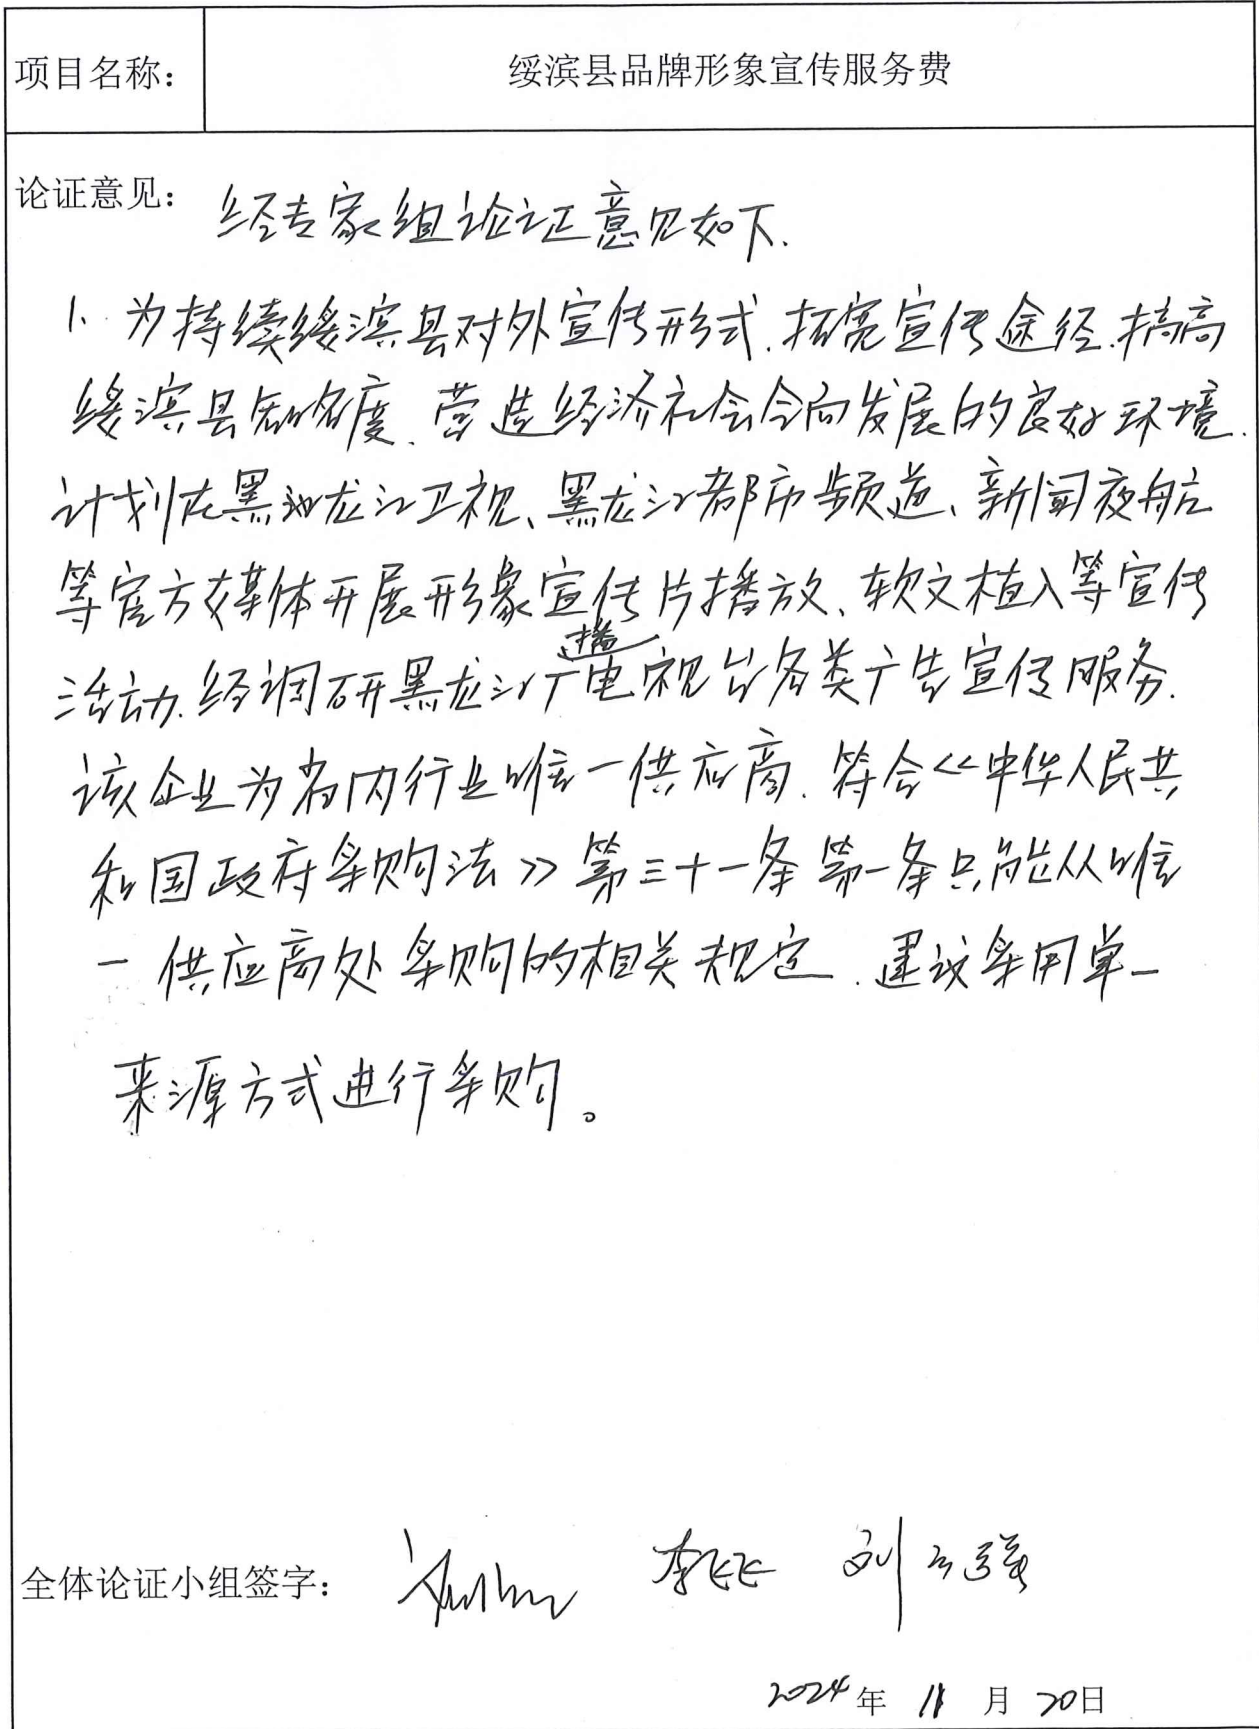 项目名称：
绥滨县品牌形象宣传服务费
论证意见：
经专家组论证意见如下.
1. 为持续绥滨县对外宣传形式.拓宽宣传途径.搞高
绥滨县知名度.营造经济社会全面发展的良好环境.
计划在黑龙江卫视、黑龙江都市频道、新闻夜航
等官方媒体开展形象宣传片播放、软文植入等宣传
活动.经调研黑龙江广播电视台各类广告宣传服务.
该企业为省内行业唯一供应商.符合《中华人民共
和国政府采购法》第三十一条第一条只能从唯
一供应商处采购的相关规定.建议采用单一
来源方式进行采购。
全体论证小组签字：
刘
2024年 11月 20日